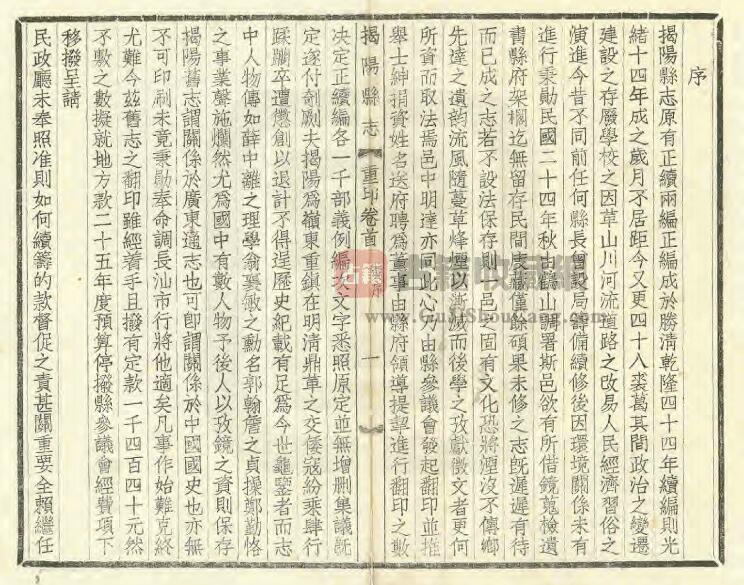 序
揭陽縣志原有正續兩編正編成於勝清乾隆四十四年續編則光
緒十四年成之歲月不居距今又更四十八裘葛其間政治之變遷
建設之存廢學校之因革山川河流道路之改易人民經濟習俗之
演進今昔不同前任何縣長曾設局籌備續修後因環境關係未有
進行秉勛民國二十四年秋由鶴山調署斯邑欲有所借鏡蒐檢遺
書縣府架櫊迄無留存民間藏僅餘碩果未修之志旣遲遲有待
而已成之志若不設法保存則一邑之固有文化恐將湮沒不傳鄉
先達之遺韵流風隨蔓草烽煙以澌滅而後學之攷獻徵文者更何
所資而取法焉邑中明達亦同此心乃由縣參議會發起翻印並推
舉士紳捐資姓名送府聘爲董事由縣府領導提挈進行翻印之數
揭陽縣志 重印卷首 序 一
決定正續編各一千部義例編次文字悉照原定並無增刪集議旣
定遂付剞劂夫揭陽爲嶺東重鎮在明清鼎革之交倭寇紛乘肆行
蹂躪卒遭懲創以退計不得逞歷史紀載有足爲今世龜鑒者而志
中人物傳如薛中離之理學翁襄敏之勳名郭翰詹之貞操鄭勤恪
之事業聲施爛然尤爲國中有數人物予後人以攷鏡之資則保存
揭陽舊志謂關係於廣東通志也可卽謂關係於中國國史也亦無
不可印刷未竟秉勛奉命調長汕市行將他適矣凡事作始難克終
尤難今茲舊志之翻印雖經着手且撥有定款一千四百四十元然
不敷之數擬就地方款二十五年度預算停撥縣參議會經費項下
移撥呈請
民政廳未奉照准則如何續籌的款督促之責甚關重要全賴繼任
古籍收藏網
www.GuJiShouCang.com